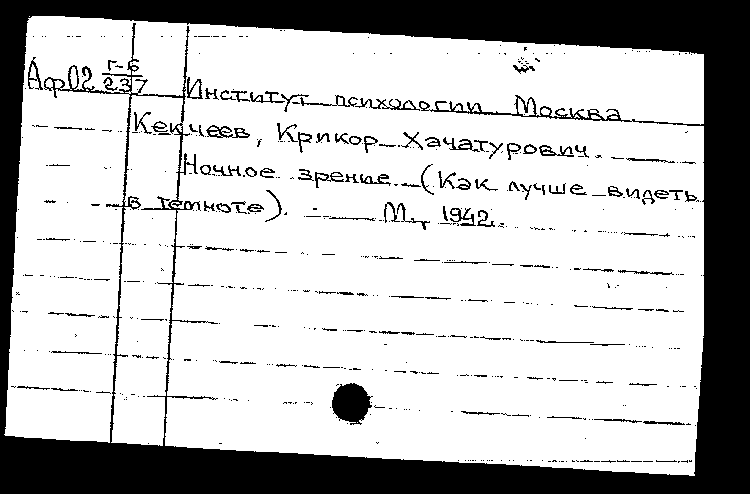 Аф02 Г-6/237 Институт психологии. Москва.
Кекчеев, Крикор Хачатурович.
Ночное зрение (Как лучше видеть
в темноте). М., 1942.